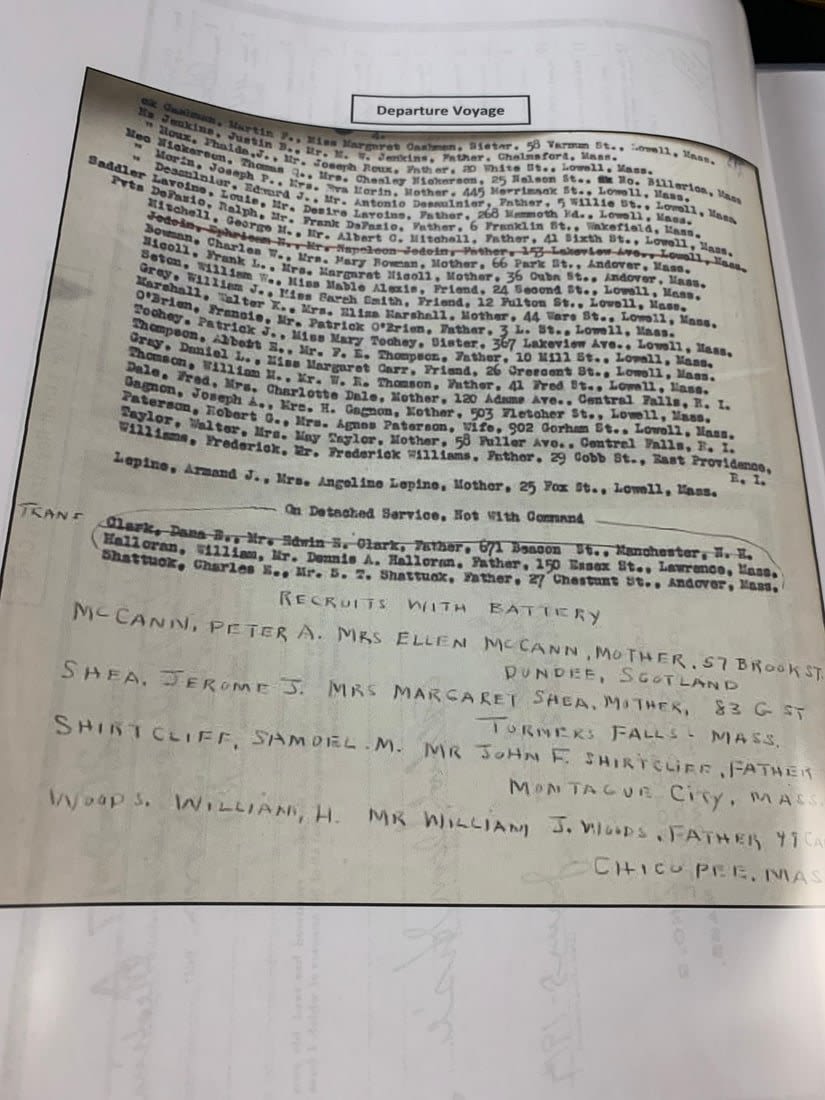 Departure Voyage
4.
ck Cashman, Martin F., Miss Margaret Cashman, Sister, 58 Varnum St., Lowell, Mass.
Hs Jenkins, Justin B., Mr. M. W. Jenkins, Father, Chelmsford, Mass.
" Roux, Phaida,J., Mr. Joseph Roux, Father, 20 White St., Lowell, Mass.
Mec Nickerson, Thomas Q., Mrs. Chesley Nickerson, 25 Nelson St., No. Billerica, Mass
" Morin, Joseph P., Mrs. Eva Morin, Mother, 445 Merrimack St., Lowell, Mass.
" Desaulnier, Edward J., Mr. Antonio Desaulnier, Father, 5 Willie St., Lowell, Mass
Saddler Lavoine, Louis, Mr. Desire Lavoine, Father, 268 Mammoth Rd., Lowell, Mass.
Pvts DeFazio, Ralph, Mr. Frank DeFazio, Father, 6 Franklin St., Wakefield, Mass.
Mitchell, George M., Mr. Albert C. Mitchell, Father, 41 Sixth St., Lowell, Mass.
Jodoin, Ephraim N., Mr. Napoleon Jodoin, Father, 153 Lakeview Ave., Lowell, Mass.
Bowman, Charles W., Mrs. Mary Bowman, Mother, 66 Park St., Andover, Mass.
Nicoll, Frank L., Mrs. Margaret Nicoll, Mother, 36 Cuba St., Andover, Mass.
Seton, William W., Miss Mable Alexis, Friend, 24 Second St., Lowell, Mass.
Gray, William J., Miss Sarah Smith, Friend, 12 Fulton St., Lowell, Mass.
Marshall, Walter K., Mrs. Eliza Marshall, Mother, 44 Ware St., Lowell, Mass.
O'Brien, Francis, Mr. Patrick O'Brien, Father, 3 L. St., Lowell, Mass.
Toohey, Patrick J., Miss Mary Toohey, Sister, 367 Lakeview Ave., Lowell, Mass.
Thompson, Albert E., Mr. F. E. Thompson, Father, 10 Mill St., Lowell, Mass.
Gray, Daniel L., Miss Margaret Carr, Friend, 26 Crescent St., Lowell, Mass.
Thomson, William H., Mr. W. R. Thomson, Father, 41 Fred St., Lowell, Mass.
Dale, Fred, Mrs. Charlotte Dale, Mother, 120 Adams Ave., Central Falls, R. I.
Gagnon, Joseph A., Mrs. H. Gagnon, Mother, 503 Fletcher St., Lowell, Mass.
Paterson, Robert G., Mrs. Agnes Paterson, Wife, 902 Gorham St., Lowell, Mass.
Taylor, Walter, Mrs. May Taylor, Mother, 58 Fuller Ave., Central Falls, R. I.
Williams, Frederick, Mr. Frederick Williams, Father, 29 Cobb St., East Providence,
R. I.
Lepine, Armand J., Mrs. Angeline Lepine, Mother, 25 Fox St., Lowell, Mass.
On Detached Service, Not With Command
TRANS
Clark, Dana B., Mr. Edwin N. Clark, Father, 671 Beacon St., Manchester, N. H.
Halloran, William, Mr. Dennis A. Halloran, Father, 150 Essex St., Lawrence, Mass.
Shattuck, Charles E., Mr. S. T. Shattuck, Father, 27 Chestunt St., Andover, Mass.
RECRUITS WITH BATTERY
MCCANN, PETER A. MRS ELLEN MCCANN, MOTHER, 57 BROOK ST.
DUNDEE, SCOTLAND
SHEA, JEROME J. MRS MARGARET SHEA, MOTHER, 83 G ST
TURNERS FALLS - MASS.
SHIRTCLIFF, SAMUEL. M. MR JOHN F. SHIRTCLIFF, FATHER
MONTAGUE CITY, MASS.
WOODS, WILLIAM, H. MR WILLIAM J. WOODS, FATHER 49 CA
CHICOPEE, MAS